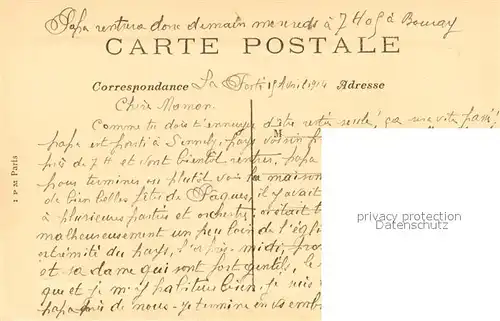 Papa rentrera donc demain mercredi à 7H05 à Bouray
CARTE POSTALE
Correspondance La Ferté 15 Avril 1914 Adresse
Chère Maman.
Comme tu dois t'ennuyer d'être restée seule, ça a vite passé
M
papa est parti à Sennely, pays voisin
près de 7H et vont bientôt rentrer, papa
pour terminer
de bien belles fêtes de Pâques, il y avait
à plusieurs parties et orchestre, c'était
malheureusement un peu loin de l'église
extrémité du pays, l'après-midi,
et sa dame qui sont fort gentils, le
que et je m'y habitue bien, je suis
papa près de nous. Je termine en vous
privacy protection
Datenschutz
I P M Paris